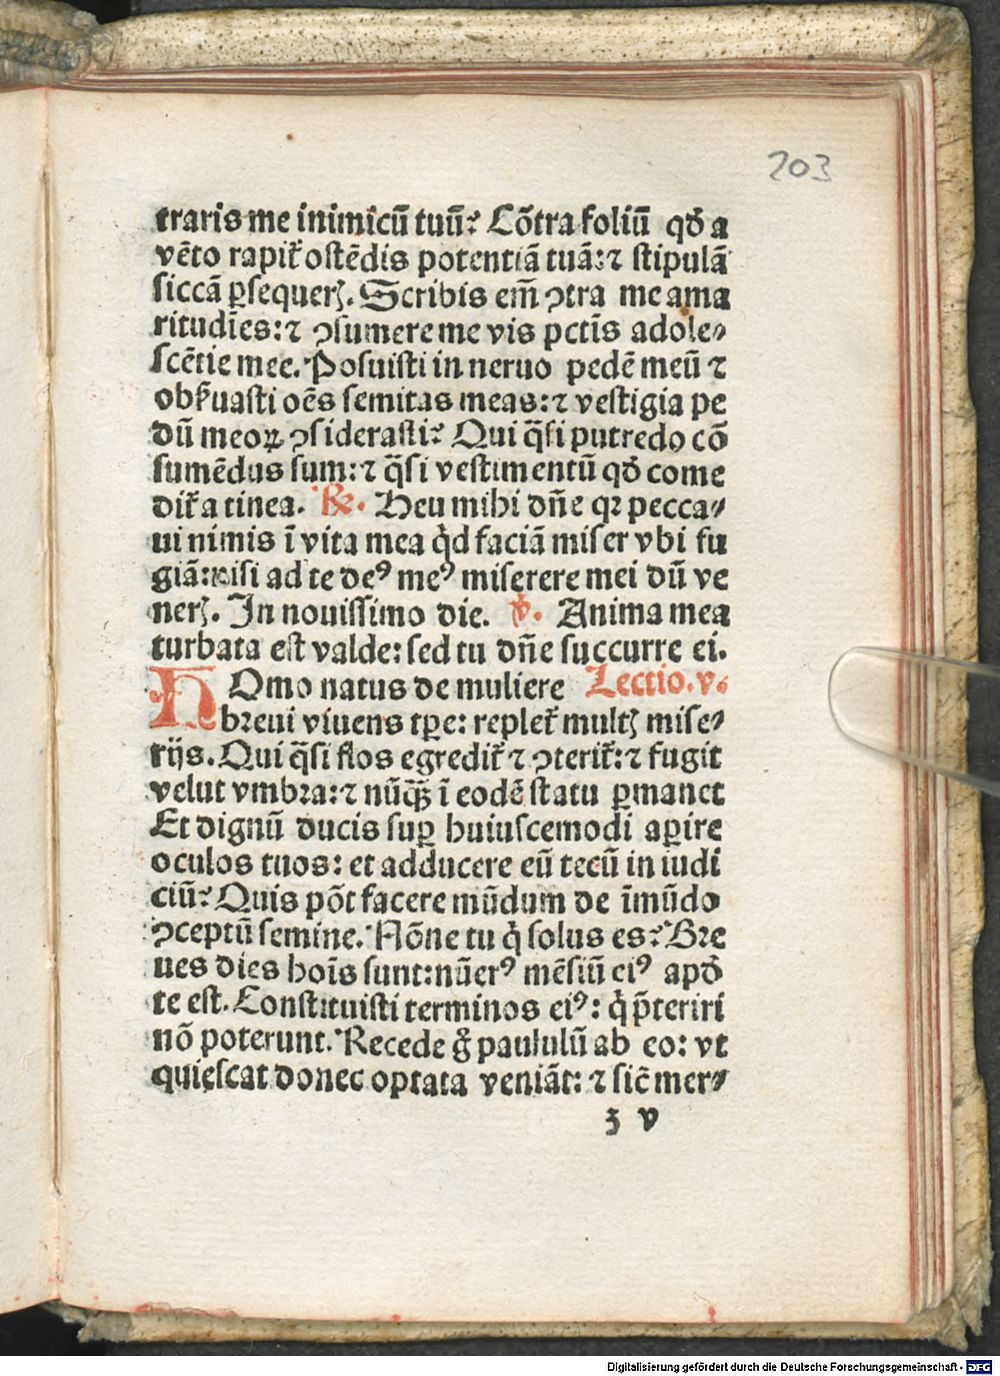 203
traris me inimicū tuū? Cōtra foliū qđ a
vēto rapit᷑ ostēdis potentiā tuā: ⁊ stipulā
siccā ꝑsequerꝫ. Scribis em̄ ꝯtra me ama
ritudīes: ⁊ ꝯsumere me vis pctīs adole⸗
scētie mee. Posuisti in neruo pedē meū ⁊
obẜuasti oēs semitas meas: ⁊ vestigia pe
dū meoꝝ ꝯsiderasti? Qui q̄si putredo cō
sumēdus sum: ⁊ q̄si vestimentū qđ come
dit᷑ a tinea. ℟. Heu mihi dn̄e qꝛ pecca⸗
ui nimis ī vita mea qͥd faciā miser vbi fu
giā: nisi ad te deꝰ meꝰ miserere mei dū ve
nerꝫ. In nouissimo die. ℣. Anima mea
turbata est valde: sed tu dn̄e succurre ei.
HOmo natus de muliere Lectio. v.
breui viuens tꝑe: replet᷑ multꝫ mise⸗
rijs. Qui q̄si flos egredit᷑ ⁊ ꝯterit᷑: ⁊ fugit
velut vmbra: ⁊ nūq̄ꝫ ī eodē statu ꝑmanet
Et dignū ducis suꝑ huiuscemodi aꝑire
oculos tuos: et adducere eū tecū in iudi
ciū? Quis pōt facere mūdum de īmūdo
ꝯceptū semine. Nōne tu qͥ solus es? Bre
ues dies hoīs sunt: nūerꝰ mēsiū eiꝰ apđ
te est. Constituisti terminos eiꝰ: qͥ p̄teriri
nō poterunt. Recede g̊ paululū ab eo: vt
quiescat donec optata veniāt: ⁊ sic̄ mer⸗
ʒ v
Digitalisierung gefördert durch die Deutsche Forschungsgemeinschaft - DFG